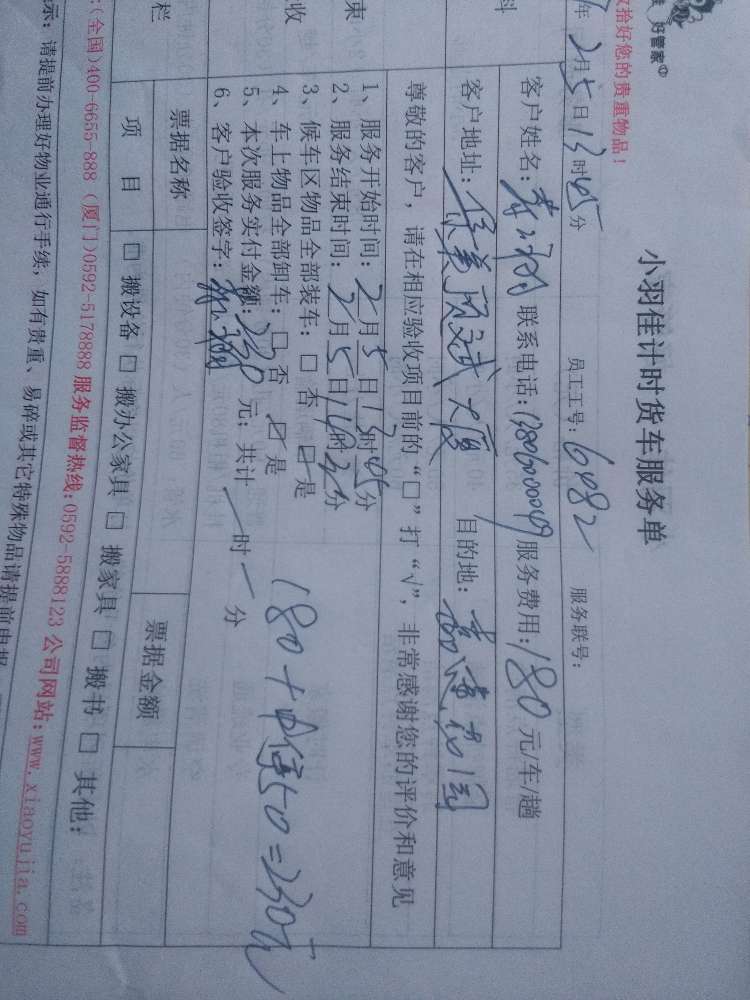 好管家
收拾好您的贵重物品!
小羽佳计时货车服务单
年2月5日13时45分 员工工号:6482 服务联号:
客户姓名: 联系电话:13806000049 服务费用:180元/车/趟
客户地址: 大厦 目的地:
尊敬的客户,请在相应验收项目前的“□”打“√”,非常感谢您的评价和意见
1、服务开始时间:2月5日13时45分
2、服务结束时间:2月5日14时32分
3、候车区物品全部装车:□ 否 ☑ 是
4、车上物品全部卸车:□ 否 ☑ 是
5、本次服务实付金额:230元;共计 / 时 / 分
6、客户验收签字:
180+中停50=230元
料
束
收
栏
票据名称 票据金额
项 目 □ 搬设备 □ 搬办公家具 □ 搬家具 □ 搬书 □ 其他:
:(全国)400-6655-888 (厦门)0592-5178888 服务监督热线:0592-5888123 公司网站:www.xiaoyujia.com
示:请提前办理好物业通行手续,如有贵重、易碎或其它特殊物品请提前申报